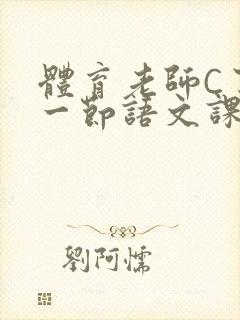 體育老師C
一節語文課
劉阿懦